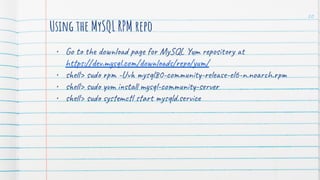 10
Using the MySQL RPM repo
• Go to the download page for MySQL Yum repository at
https://dev.mysql.com/downloads/repo/yum/
• shell> sudo rpm -Uvh mysql80-community-release-el6-n.noarch.rpm
• shell> sudo yum install mysql-community-server
• shell> sudo systemctl start mysqld.service